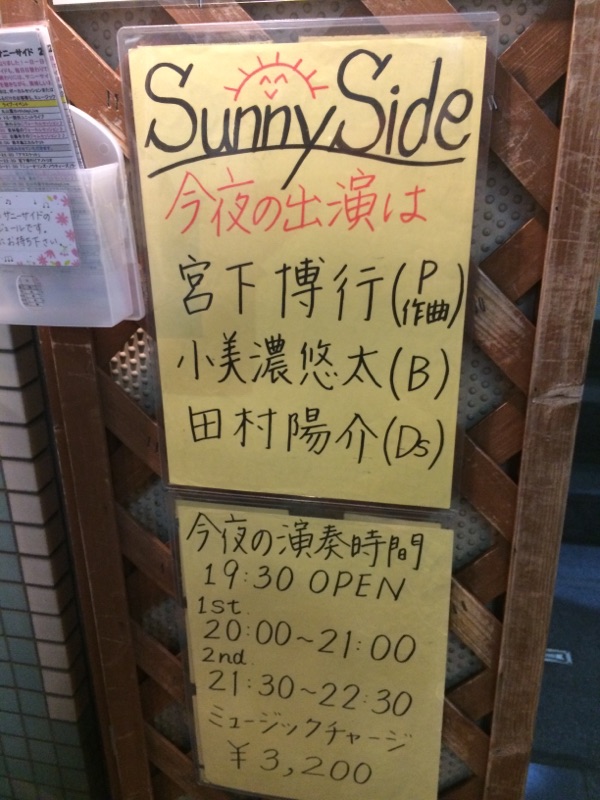 Sunny Side
今夜の出演は
宮下博行(P 作曲)
小美濃悠太(B)
田村陽介(Ds)
今夜の演奏時間
19:30 OPEN
1st
20:00~21:00
2nd
21:30~22:30
ミュージックチャージ
¥3,200
サニーサイドの
ジュールです。
にお持ち下さい